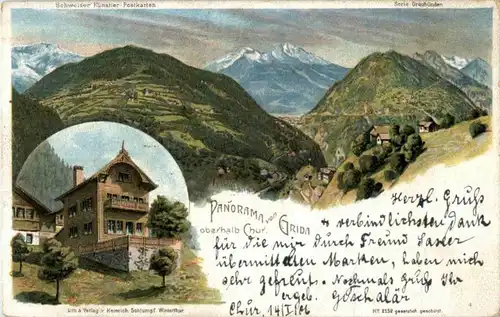 Schweizer Künstler-Postkarten
Serie Graubünden
PANORAMA VON GRIDA
oberhalb Chur.
Herzl. Gruß
u. verbindlichsten Dank
für die mir durch Freund
übermittelten Marken, haben mich
sehr gefreut. Nochmals Gruß Ihr
ergeb.
Chur, 14/I 06
Lith. & Verlag v. Heinrich Schlumpf, Winterthur
Nr. gesetzlich geschützt.